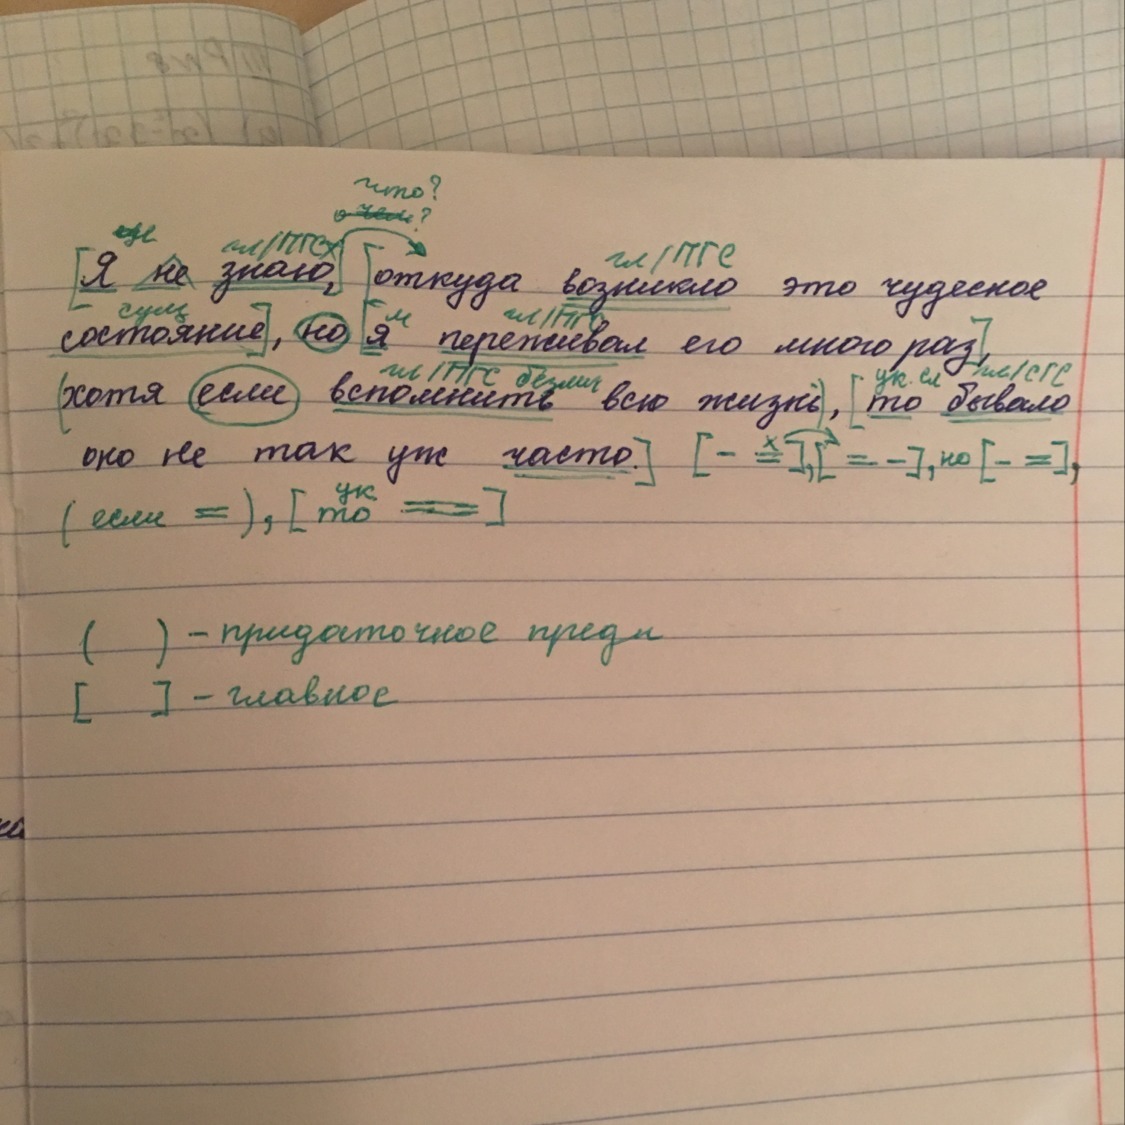 что?
о чем?
гл/ПГС
гл/ПГС
[Я не знаю,] [откуда возникло это чудесное
сущ м гл/ПГС
состояние], но [я переживал его много раз],
гл/ПГС безлич ук. сл гл/СГС
(хотя если вспомнить всю жизнь), [то бывало
оно не так уж часто.] [- х=],[= -], но [- =],
ук
(если =), [то ==]
( ) - придаточное предл
[ ] - главное